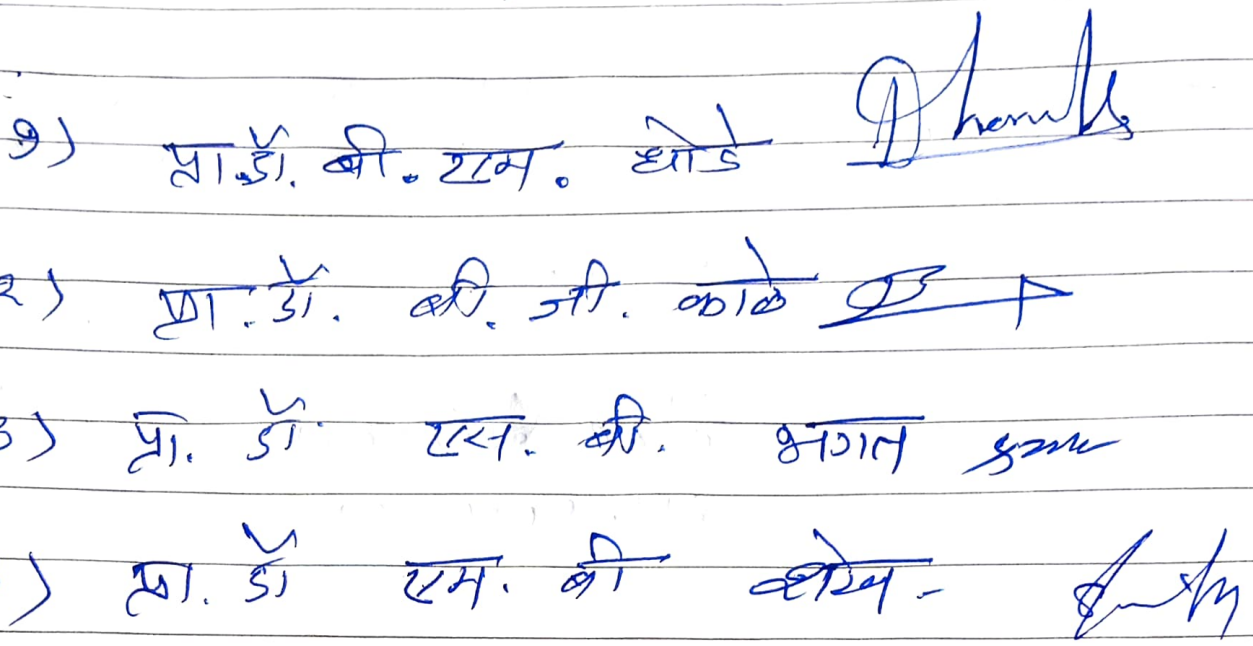 १) प्रा.डॉ. बी. एम. धोडे
२) प्रा. डॉ. बी. जी. काळे
३) प्रा. डॉ. एस. बी. भगत
) प्रा. डॉ एम. बी